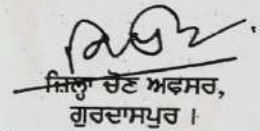 ਜ਼ਿਲ੍ਹਾ ਚੋਣ ਅਫਸਰ,
ਗੁਰਦਾਸਪੁਰ ।